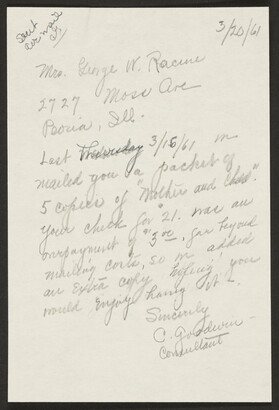 Sent
air mail
3/20/61
Mrs. George W. Racine
2727 Moss Ave
Peoria, Ill.
Last Thursday 3/16/61 m
mailed you a packet of
5 copies of "Mother and Child".
Your check for 21. was an
overpayment of $3.00, far beyond
mailing costs, so m added
an extra copy hoping you
would enjoy having it —
Sincerely
C. Goodwin —
Consultant